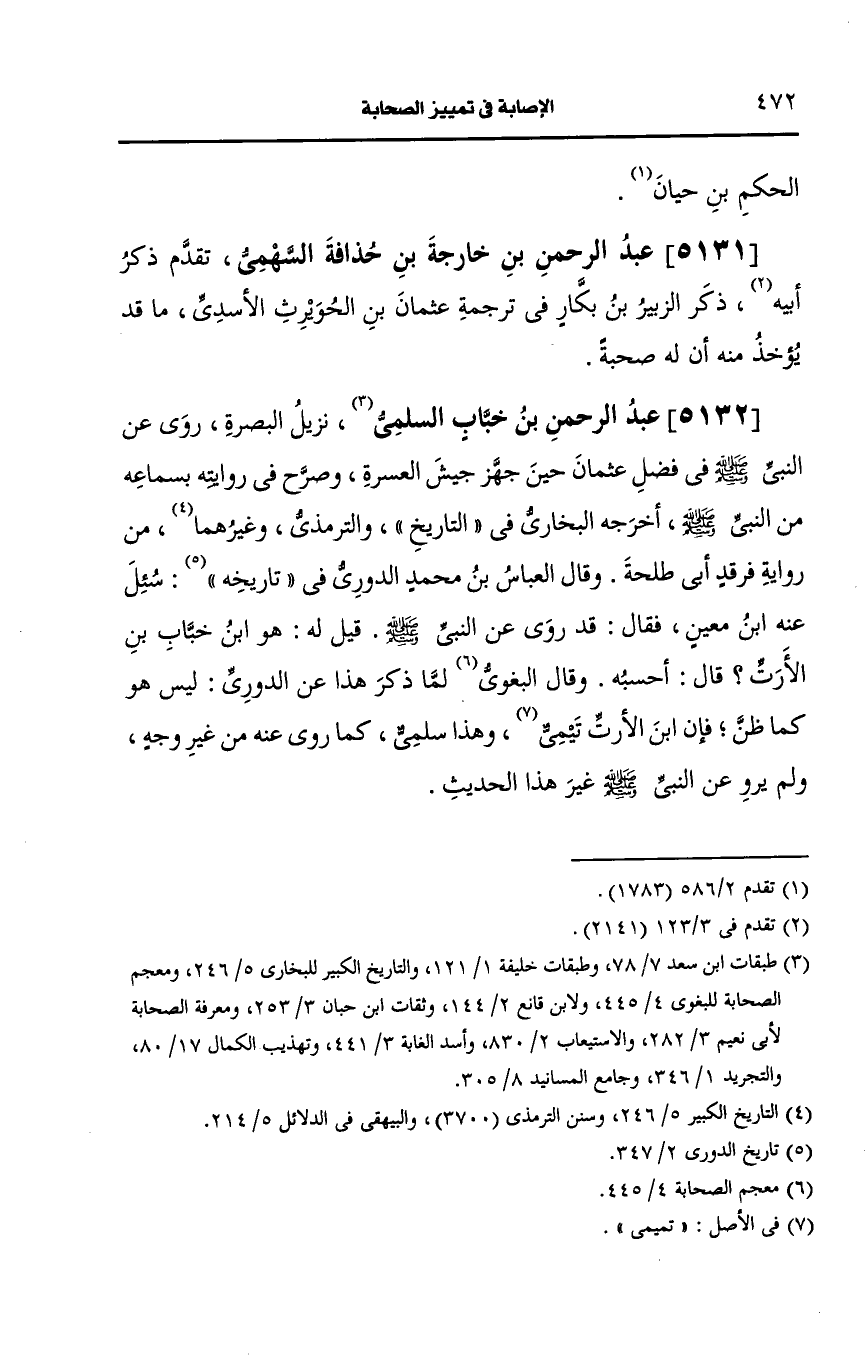 ٤٧٢ الإصابة فى تمييز الصحابة
الحكمِ بنِ حيانَ(١) .
[٥١٣١] عبدُ الرحمنِ بنِ خارجةَ بنِ حُذافةَ السَّهْمِىُّ ، تقدَّم ذكرُ
أبيه(٢) ، ذكَر الزبيرُ بنُ بكَّارٍ فى ترجمةِ عثمانَ بنِ الحُوَيْرِثِ الأسدِىِّ ، ما قد
يُؤخذُ منه أن له صحبةً .
[٥١٣٢] عبدُ الرحمنِ بنُ خبَّابٍ السلمِىُّ(٣) ، نزيلُ البصرةِ ، روَى عن
النبىِّ ﷺ فى فضلِ عثمانَ حينَ جهَّز جيشَ العسرةِ ، وصرَّح فى روايتِه بسماعِه
من النبىِّ ﷺ ، أخرَجه البخارىُّ فى « التاريخِ » ، والترمذىُّ ، وغيرُهما(٤) ، من
روايةِ فرقدٍ أبى طلحةَ . وقال العباسُ بنُ محمدٍ الدورِىُّ فى « تاريخِه »(٥) : سُئِلَ
عنه ابنُ معينٍ ، فقال : قد روَى عن النبىِّ ﷺ . قيل له : هو ابنُ خبَّابِ بنِ
الأَرَتِّ ؟ قال : أحسبُه . وقال البغوىُّ(٦) لمَّا ذكرَ هذا عن الدورِىِّ : ليس هو
كما ظنَّ ؛ فإن ابنَ الأرتِّ تَيْمِىٌّ(٧) ، وهذا سلمِىٌّ ، كما روى عنه من غيرِ وجهٍ ،
ولم يروِ عن النبىِّ ﷺ غيرَ هذا الحديثِ .
(١) تقدم ٥٨٦/٢ (١٧٨٣) .
(٢) تقدم فى ١٢٣/٣ (٢١٤١) .
(٣) طبقات ابن سعد ٧/ ٧٨، وطبقات خليفة ١/ ١٢١، والتاريخ الكبير للبخارى ٥/ ٢٤٦، ومعجم
الصحابة للبغوى ٤/ ٤٤٥، ولابن قانع ٢/ ١٤٤، وثقات ابن حبان ٣/ ٢٥٣، ومعرفة الصحابة
لأبى نعيم ٣/ ٢٨٢، والاستيعاب ٢/ ٨٣٠، وأسد الغابة ٣/ ٤٤١، وتهذيب الكمال ١٧/ ٨٠،
والتجريد ١/ ٣٤٦، وجامع المسانيد ٨/ ٣٠٥.
(٤) التاريخ الكبير ٥/ ٢٤٦، وسنن الترمذى (٣٧٠٠)، والبيهقى فى الدلائل ٥/ ٢١٤.
(٥) تاريخ الدورى ٢/ ٣٤٧.
(٦) معجم الصحابة ٤/ ٤٤٥.
(٧) فى الأصل : « تميمى » .